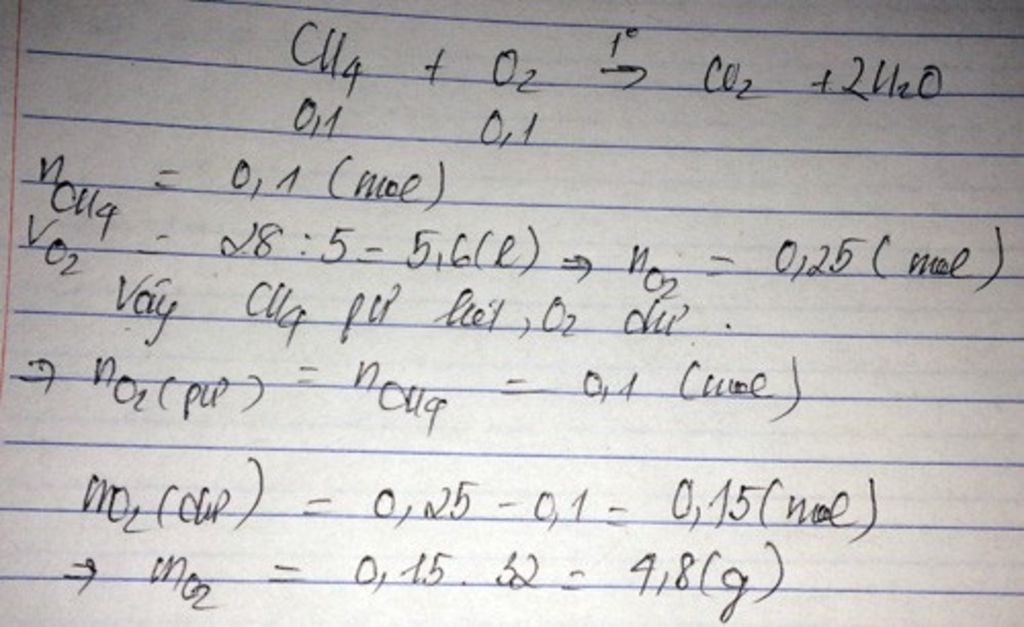 CH4 + O2 t°→ CO2 + 2H2O
0,1 0,1
nCH4 = 0,1 (mol)
VO2 = 28 : 5 = 5,6(l) ⇒ nO2 = 0,25 (mol)
Vậy CH4 pứ hết, O2 dư.
⇒ nO2 (pứ) = nCH4 = 0,1 (mol)
nO2 (dư) = 0,25 - 0,1 = 0,15 (mol)
⇒ mO2 = 0,15 . 32 = 4,8(g)